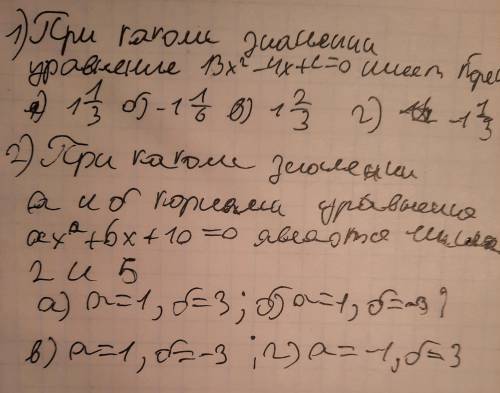 1) При каком значении
уравнение 13x² - 4x + c = 0 имеет
а) 1 1/3 б) -1 1/6 в) 1 2/3 г) -1 1/3
2) При каком значении
а и б корнями уравнения
ax² + бx + 10 = 0 являются числа
2 и 5
а) а=1, б=3; б) а=1, б=-3
в) а=1, б=-3; г) а=-1, б=3